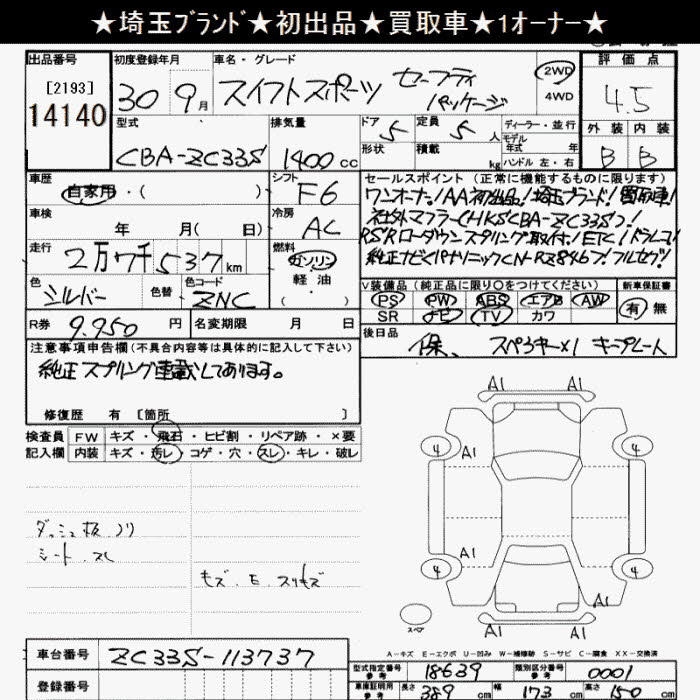 ★埼玉ブランド★初出品★買取車★1オーナー★
出品番号
[2193]
14140
初度登録年月
30 9月
車名・グレード
スイフトスポーツ セーフティパッケージ
2WD
4WD
評価点
4.5
外装 内装
B B
型式
CBA-ZC33S
排気量
1400cc
ドア 5
形状
定員 5人
積載 kg
ディーラー・並行
モデル年式 年
ハンドル 左・右
車歴
自家用・( )
シフト
F6
車検
年 月( 日)
冷房
AC
走行
2万7千537km
燃料
ガソリン
軽油
( )
色
シルバー
色替
色コード
ZNC
R券 9.950円
名変期限 月 日
セールスポイント(正常に機能するものに限ります)
ワンオーナー!AA初出品!埼玉ブランド!買取車!
社外マフラー(HKS CBA-ZC33S)!
RSRローダウンスプリング取付!ETC!ドラレコ!
純正ナビ(パナソニックCN-RZ846)!フルセグ!
V装備品(純正品に限り○をつけてください)
PS PW ABS エアB AW
SR ナビ TV カワ
新車保証書
有 無
後日品
保、スペ3キー×1 キープレート
注意事項申告欄(不具合内容等は具体的に記入して下さい)
純正スプリング車載してあります。
修復歴 有 [箇所 ]
検査員記入欄
FW キズ・飛石・ヒビ割・リペア跡・×要
内装 キズ・汚レ・コゲ・穴・スレ・キレ・破レ
ダッシュ板 ノリ
シート スレ
キズ、E、スリキズ
A1 A1
4 A1 4
A1
4 4
A1
A1 A1
スペア
A-キズ E-エクボ U-凹み W-補修跡 S-サビ C-腐食 XX-交換済
車台番号
ZC33S-113737
登録番号
型式指定番号 参考 18639
類別区分番号 参考 0001
車庫証明用 参考 長さ 389cm 幅 173cm 高さ 150cm